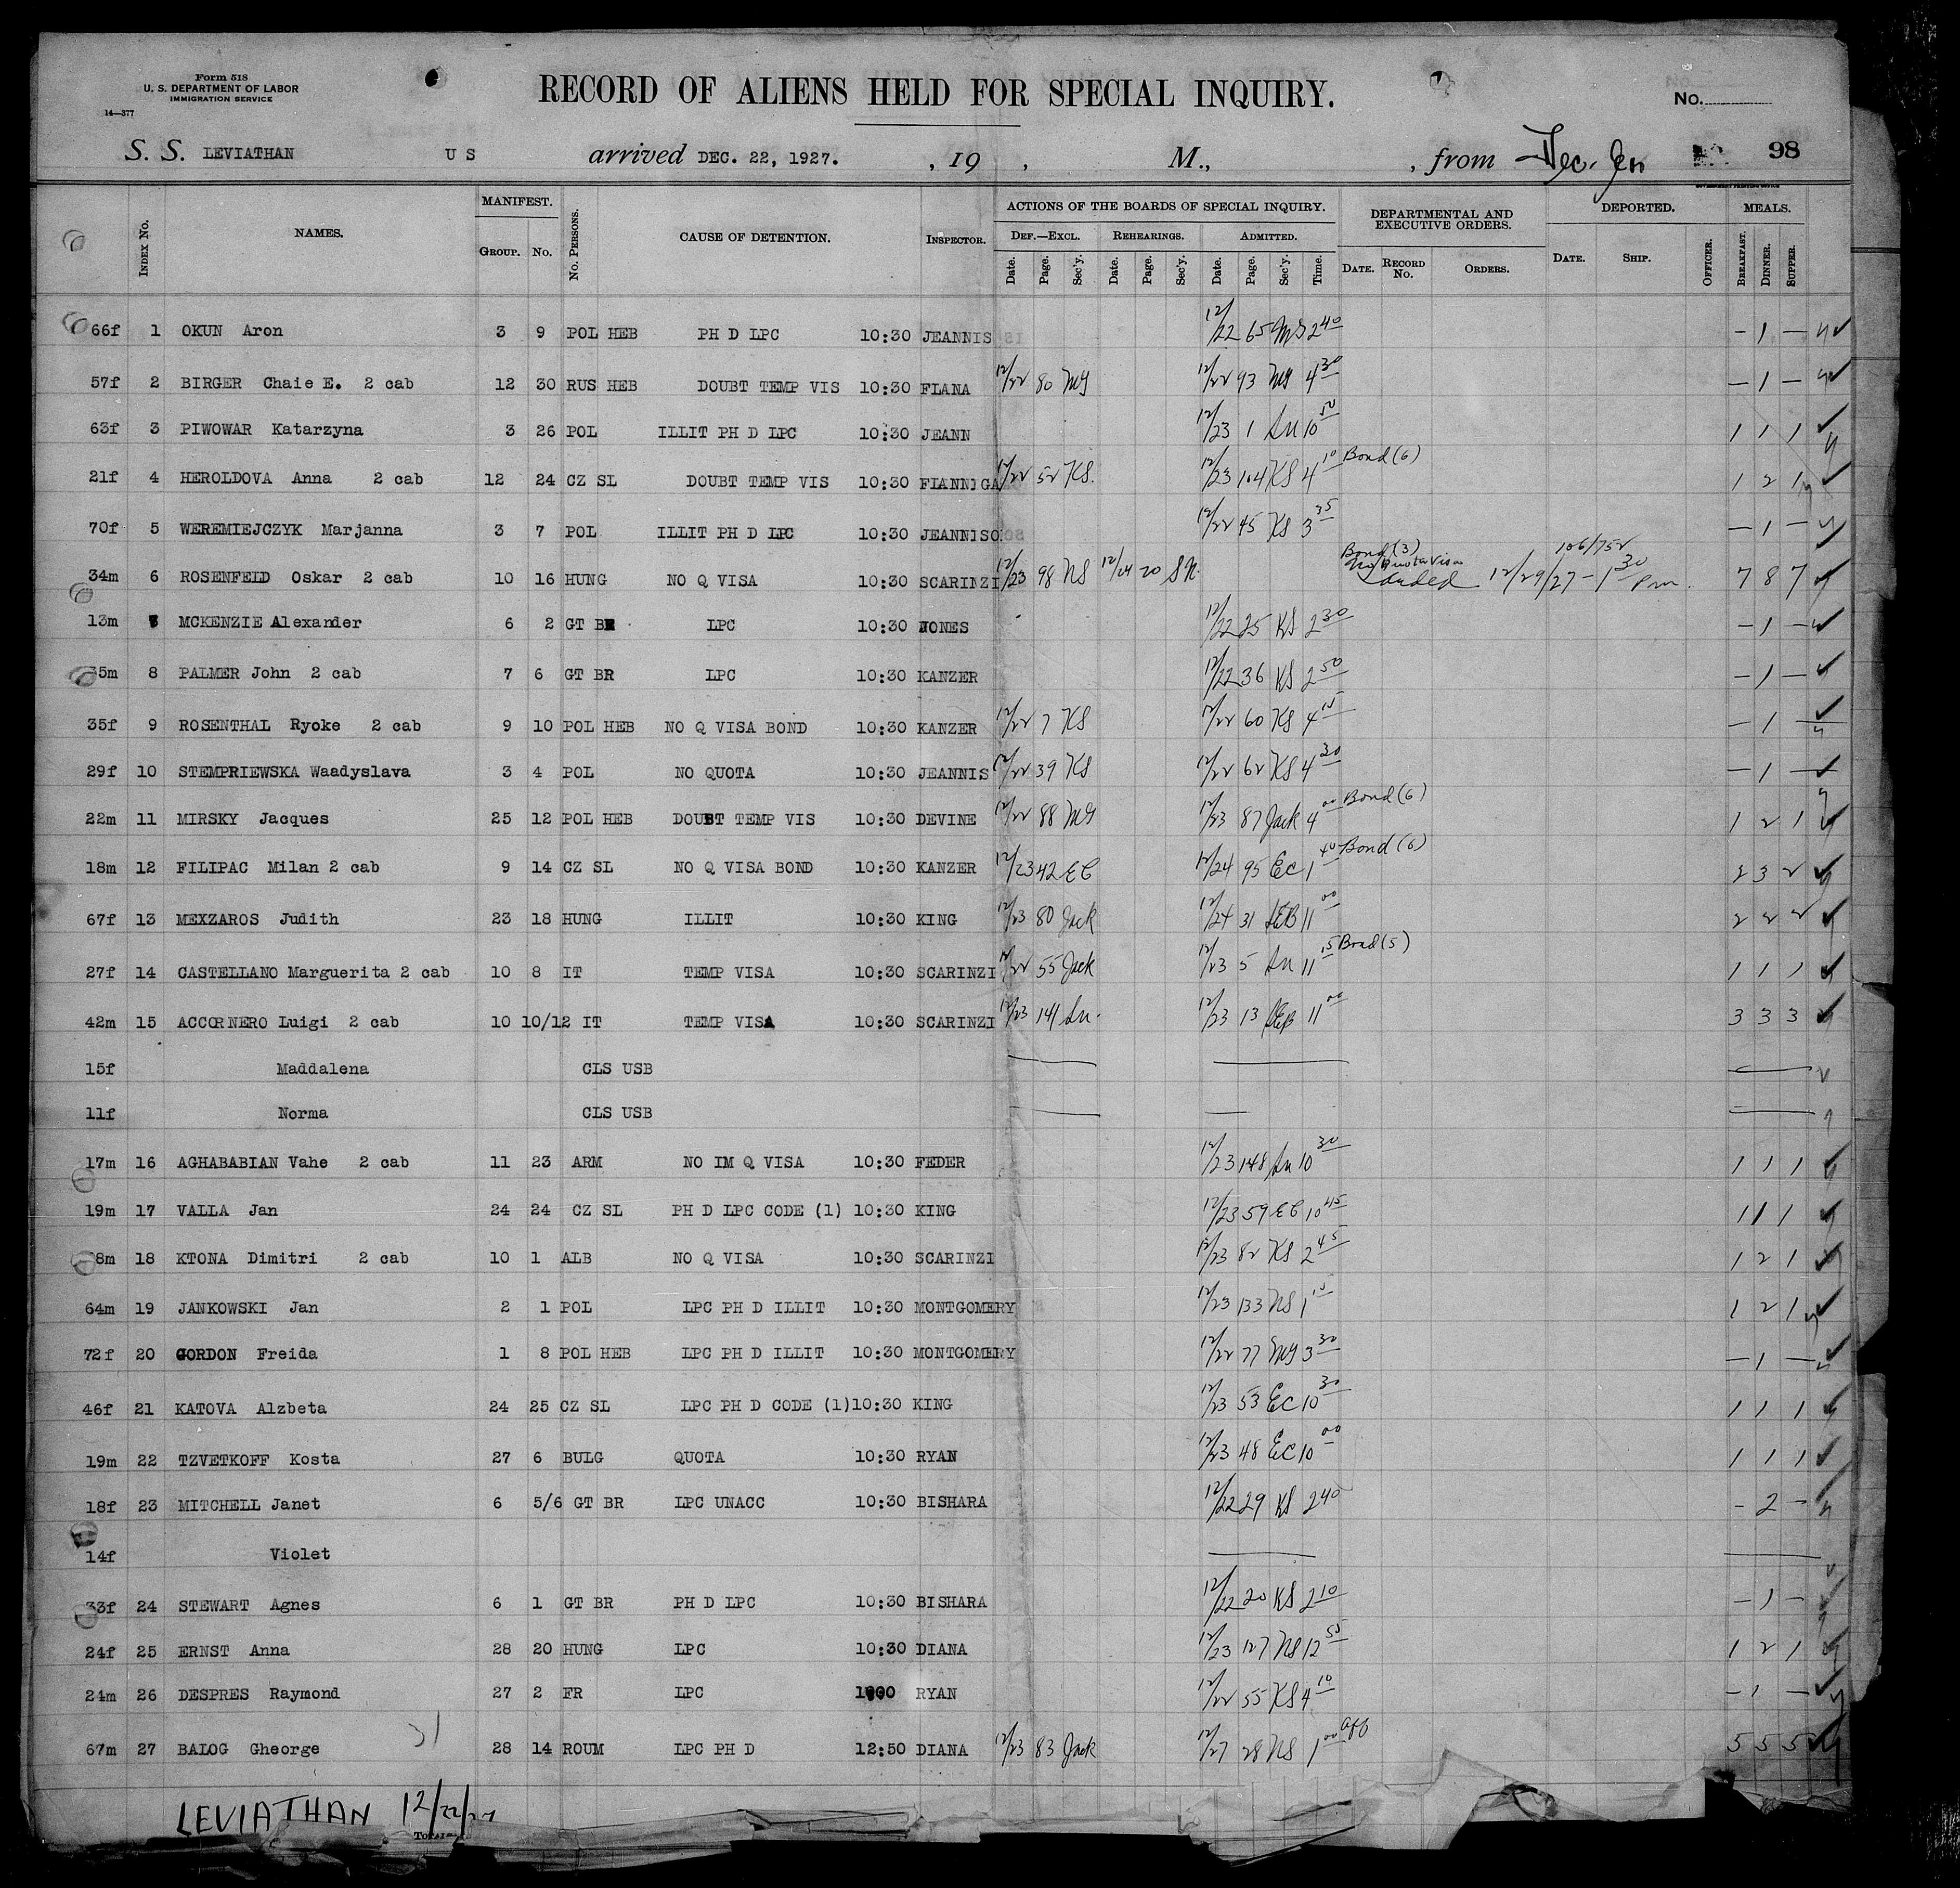 Form 518
U. S. DEPARTMENT OF LABOR
IMMIGRATION SERVICE
14—377
RECORD OF ALIENS HELD FOR SPECIAL INQUIRY.
No.
S. S. LEVIATHAN U S arrived DEC. 22, 1927. , 19 , M., , from 98
INDEX NO. NAMES. MANIFEST. GROUP. NO. NO. PERSONS. CAUSE OF DETENTION. INSPECTOR. ACTIONS OF THE BOARDS OF SPECIAL INQUIRY. DEPARTMENTAL AND EXECUTIVE ORDERS. DEPORTED. MEALS.
DEF.—EXCL. REHEARINGS. ADMITTED.
Date. Page. Sec'y. Date. Page. Sec'y. Date. Page. Sec'y. Time. DATE. RECORD NO. ORDERS. DATE. SHIP. OFFICER. BREAKFAST. DINNER. SUPPER.
66f 1 OKUN Aron 3 9 POL HEB PH D LPC 10:30 JEANNIS 12/22 65 MS 2 40 — 1 —
57f 2 BIRGER Chaie E. 2 cab 12 30 RUS HEB DOUBT TEMP VIS 10:30 FLANA 12/22 80 MG 12/22 93 MG 4 30 — 1 —
63f 3 PIWOWAR Katarzyna 3 26 POL ILLIT PH D LPC 10:30 JEANN 12/23 1 10 50 1 1 1
21f 4 HEROLDOVA Anna 2 cab 12 24 CZ SL DOUBT TEMP VIS 10:30 FLANNIGA 12/22 52 KS. 12/23 104 KS 4 10 Bond (6) 1 2 1
70f 5 WEREMIEJCZYK Marjanna 3 7 POL ILLIT PH D LPC 10:30 JEANNISO 12/22 45 KS 3 35 — 1 —
34m 6 ROSENFELD Oskar 2 cab 10 16 HUNG NO Q VISA 10:30 SCARINZI 12/23 98 NS 12/24 20 Bond (3) No Quota Visa Landed 106/752 12/29/27 — 1 30 Pm. 7 8 7
13m 7 MCKENZIE Alexander 6 2 GT BR LPC 10:30 JONES 12/22 25 KS 2 30 — 1 —
35m 8 PALMER John 2 cab 7 6 GT BR LPC 10:30 KANZER 12/22 36 KS 2 50 — 1 —
35f 9 ROSENTHAL Ryoke 2 cab 9 10 POL HEB NO Q VISA BOND 10:30 KANZER 12/22 7 KS 12/22 60 KS 4 15 — 1 —
29f 10 STEMPRIEWSKA Waadyslava 3 4 POL NO QUOTA 10:30 JEANNIS 12/22 39 KS 12/22 62 KS 4 30 — 1 —
22m 11 MIRSKY Jacques 25 12 POL HEB DOUBT TEMP VIS 10:30 DEVINE 12/22 88 MG 12/23 87 Jack 4 00 Bond (6) 1 2 1
18m 12 FILIPAC Milan 2 cab 9 14 CZ SL NO Q VISA BOND 10:30 KANZER 12/23 42 EC 12/24 95 EC 1 40 Bond (6) 2 3 2
67f 13 MEXZAROS Judith 23 18 HUNG ILLIT 10:30 KING 12/23 80 Jack 12/24 31 SEB 11 00 2 2 2
27f 14 CASTELLANO Marguerita 2 cab 10 8 IT TEMP VISA 10:30 SCARINZI 12/22 55 Jack 12/23 5 11 15 Bond (5) 1 1 1
42m 15 ACCORNERO Luigi 2 cab 10 10/12 IT TEMP VISA 10:30 SCARINZI 12/23 141 12/23 13 SEB 11 00 3 3 3
15f Maddalena CLS USB
11f Norma CLS USB
17m 16 AGHABABIAN Vahe 2 cab 11 23 ARM NO IM Q VISA 10:30 FEDER 12/23 148 10 30 1 1 1
19m 17 VALLA Jan 24 24 CZ SL PH D LPC CODE (1) 10:30 KING 12/23 59 EC 10 45 1 1 1
8m 18 KTONA Dimitri 2 cab 10 1 ALB NO Q VISA 10:30 SCARINZI 12/23 82 KS 2 45 1 2 1
64m 19 JANKOWSKI Jan 2 1 POL LPC PH D ILLIT 10:30 MONTGOMERY 12/23 133 NS 1 15 1 2 1
72f 20 GORDON Freida 1 8 POL HEB LPC PH D ILLIT 10:30 MONTGOMERY 12/22 77 MG 3 30 — 1 —
46f 21 KATOVA Alzbeta 24 25 CZ SL LPC PH D CODE (1) 10:30 KING 12/23 53 EC 10 30 1 1 1
19m 22 TZVETKOFF Kosta 27 6 BULG QUOTA 10:30 RYAN 12/23 48 EC 10 00 1 1 1
18f 23 MITCHELL Janet 6 5/6 GT BR LPC UNACC 10:30 BISHARA 12/22 29 KS 2 40 - 2 -
14f Violet
33f 24 STEWART Agnes 6 1 GT BR PH D LPC 10:30 BISHARA 12/22 20 KS 2 10 — 1 —
24f 25 ERNST Anna 28 20 HUNG LPC 10:30 DIANA 12/23 127 NS 12 55 1 2 1
24m 26 DESPRES Raymond 27 2 FR LPC RYAN 12/22 55 KS 4 10 — 1 —
31
67m 27 BALOG Gheorge 28 14 ROUM LPC PH D 12:50 DIANA 12/23 83 Jack 12/27 28 NS 1 00 aff 5 5 5
LEVIATHAN 12/22/27